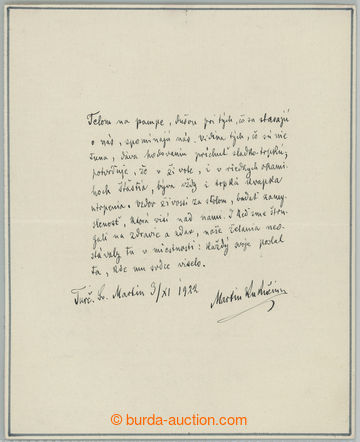 Telom na pampe, dušou pri tých, čo sa starajú
o nás, spomínajú nás. Vidina tých, čo sú nie
tuna, dáva hodovaniu príchuť sladko-trpkú,
potvrďuje, že v živote, i v riedkych okami-
hoch šťastia, býva vždy i trpká kvapka
utopenia. Vzdor živosti za stolom, badať zamy-
slenosť, ktorá visí nad nami. I keď sme štrn-
gali na zdravie a zdar, naše želania neo-
stávaly tu v miestnosti: každý svoje poslal
ta, kde mu srdce viselo.
Turč. Sv. Martin 3/XI 1922
Martin Kukučín
burda-auction.com